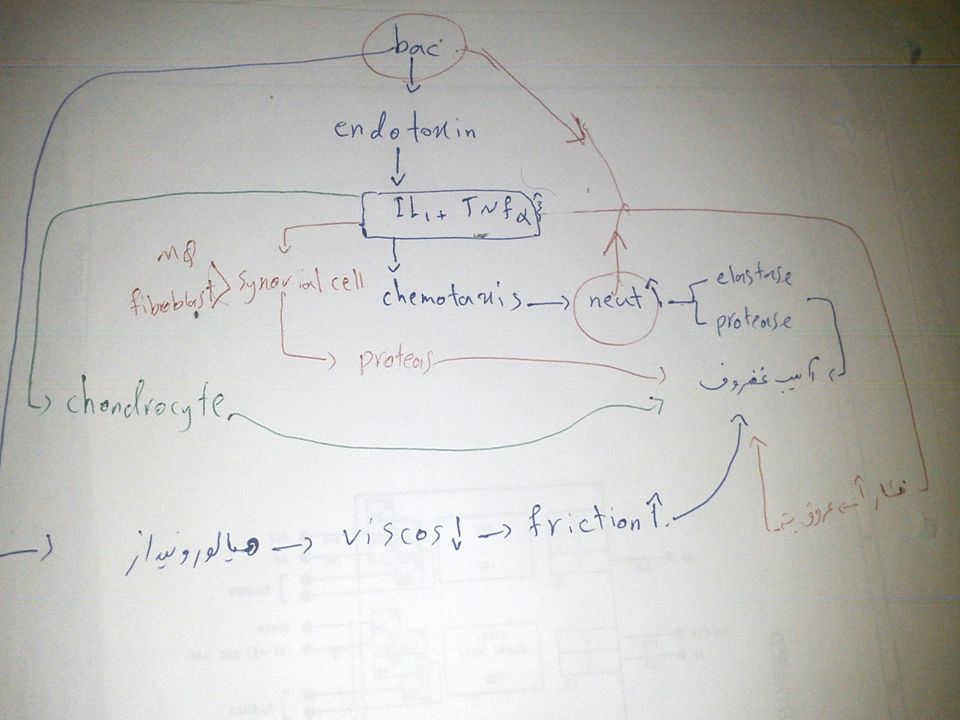 bac
endotoxin
IL1 + TNfα
MQ
fibroblast
synovial cell
chemotaxis → neut ↑
elastase
protease
proteas
آسیب غضروف
chondrocyte
فشار
هیالورونیداز → viscos ↓ → friction ↑